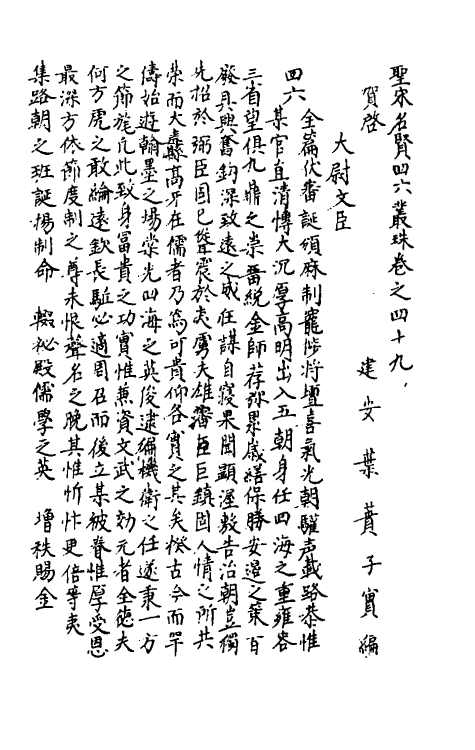 聖宋名賢四六叢珠卷之四十九
建安葉蕡子實編
賀啓
大尉文臣
四六
全篇伏審誕頒麻制寵陟將壇喜氣光朝驩声載路恭惟
某官直清博大沉厚高明出入五朝身任四海之重雍容
三省望俱九鼎之崇晉綂金師荐弥累歲繕保勝安邊之策百
廢具興奮鈞深致遠之威在謀自寝果聞顯渥敷告治朝豈獨
先招於弼臣固已聲震於夷虜夫雄藩臣巨鎮固人情之所共
荣而大纛高牙在儒者乃為可貴仰各實之其矣揆古今而罕
儔始遊翰墨之場棠光四海之英俊逮徧機衛之任遂秉一方
之節旄凢此致身冨貴之功實惟兼資文武之効元者全徳夫
何方虎之敢綸遠欽長駈必適周召而後立某被眷惟厚受恩
最深方依節度制之尊未恨聲名之晚其惟忻忭更倍等夷
集路朝之班誕揚制命　輟祕殿儒學之英　增秩賜金